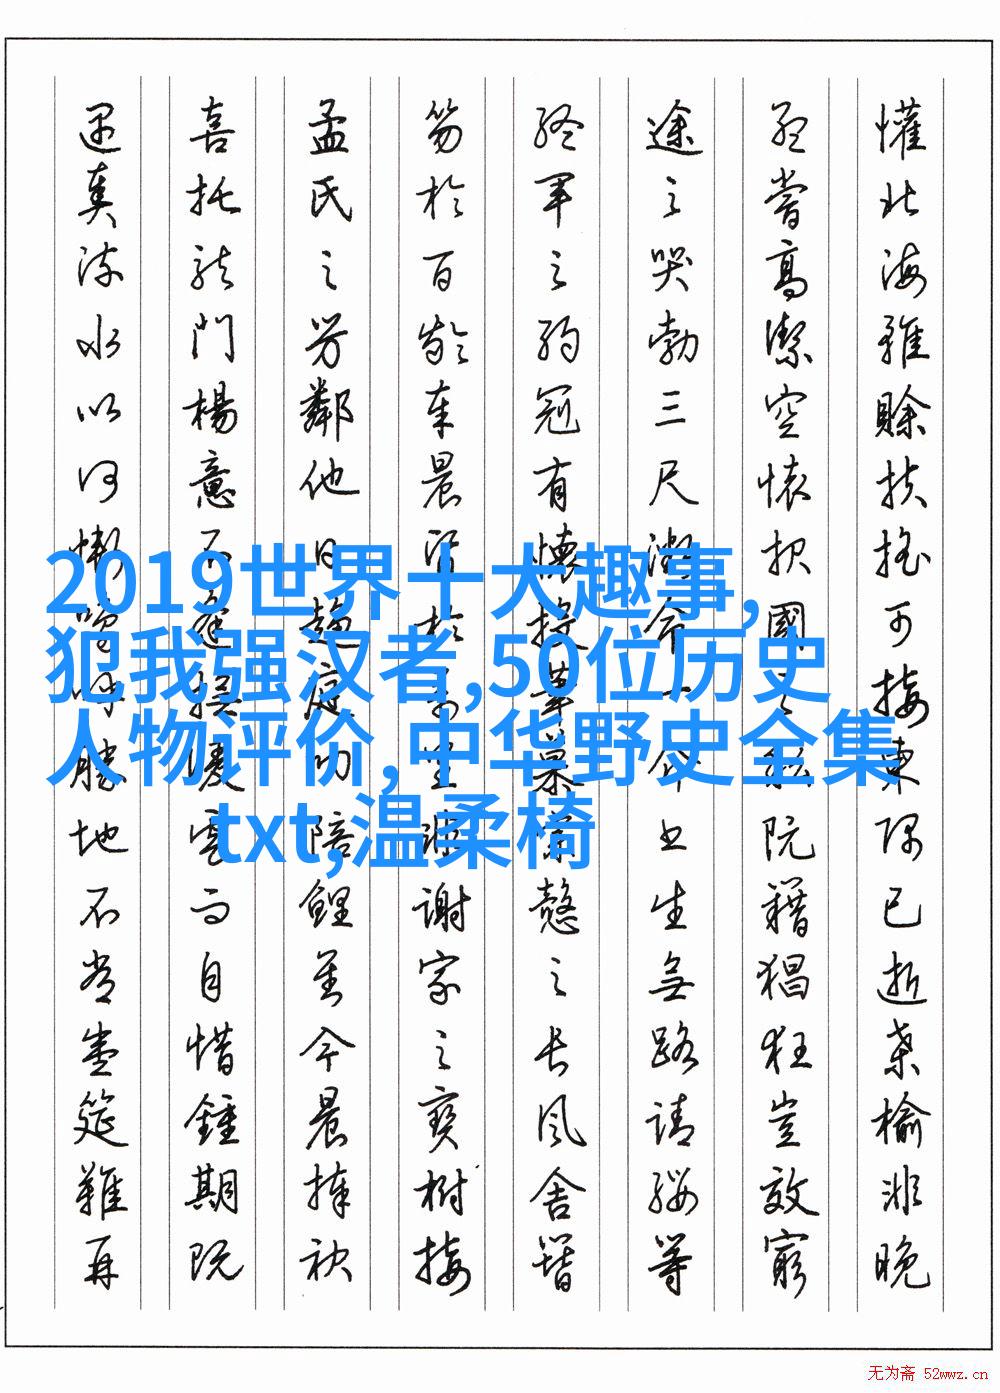 懽北海雖賒扶搖可接東隅已逝桑榆非晚
孟嘗高潔空懷报國之阮籍猖狂豈效窮
途之哭勃三尺微命一介书生無路請纓等
終軍之弱冠有懷投筆慕宗愨之長風舍簪
笏於百齡奉晨昏於万里非謝家之寶樹接
孟氏之芳鄰他日趨庭叨陪鯉對今晨捧袂
喜托龍門楊意不逢撫凌雲而自惜鍾期既
遇奏流水以何慚嗚呼勝地不常盛筵難再
2019世界十大趣事,
犯我强汉者,50位历史
人物评价,中华野史全集
txt,温柔椅
无为斋 52wwz.cn